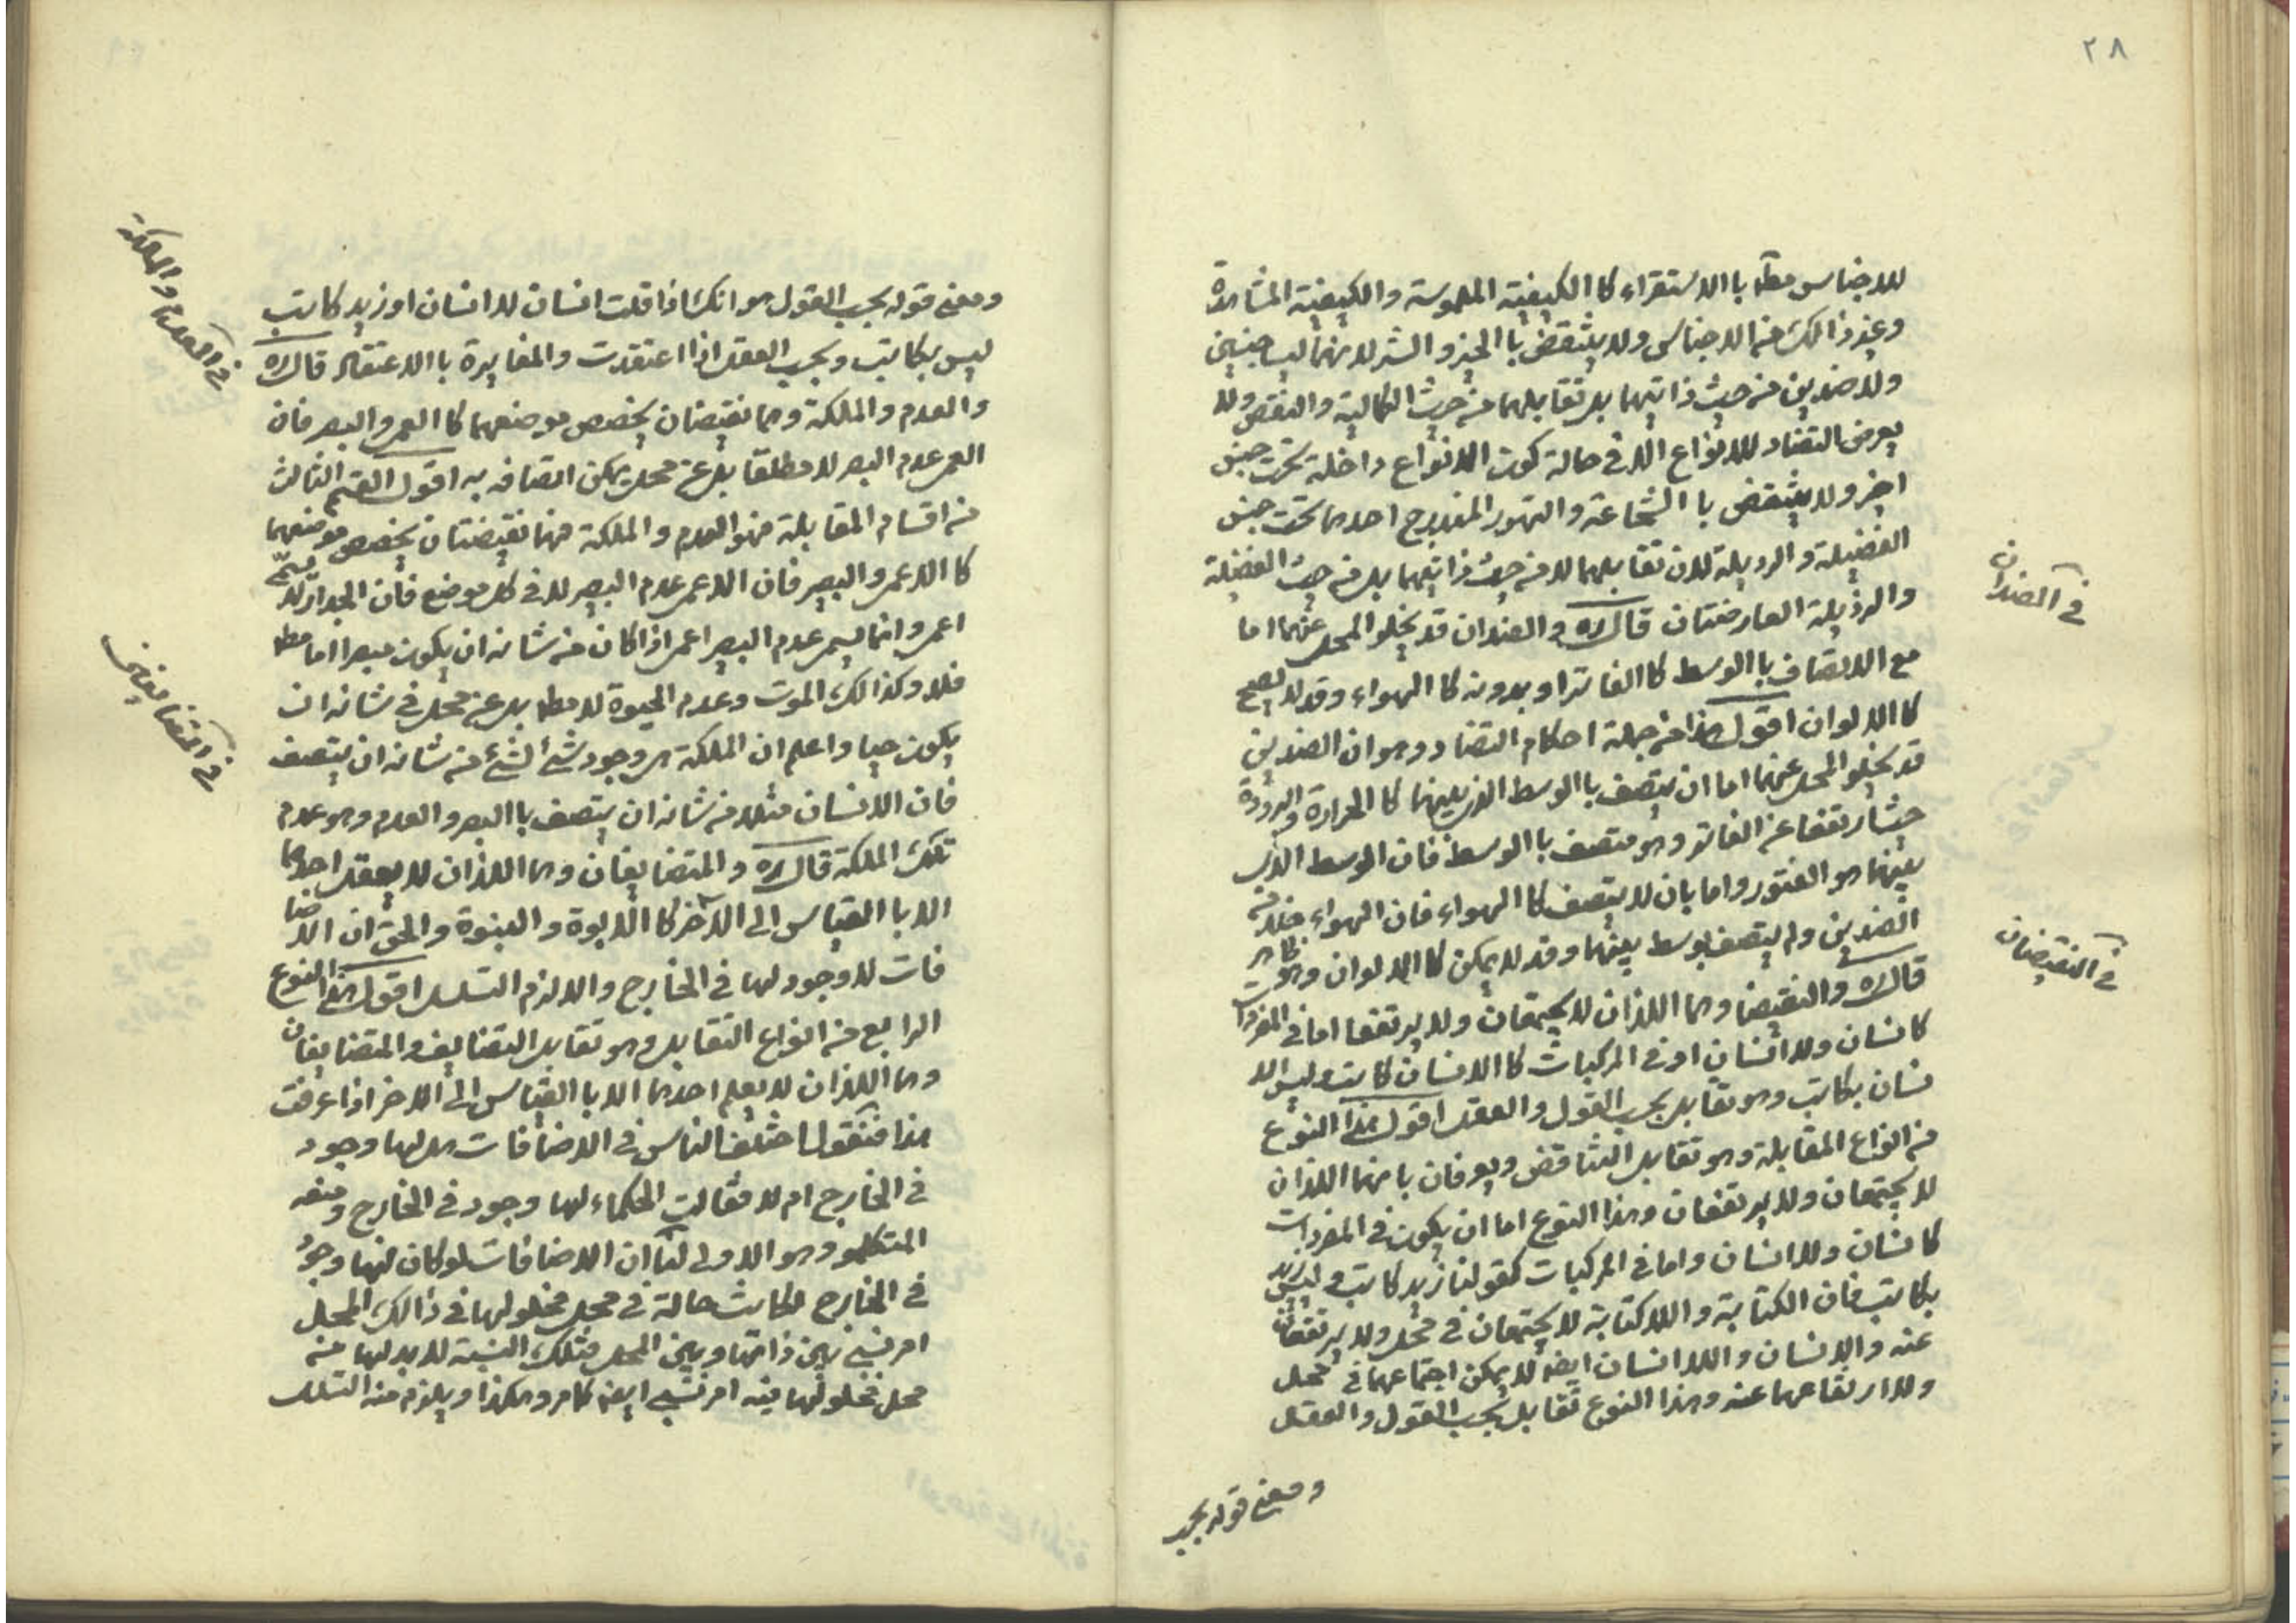 ٢٨
للاجناس مطلقا باالاستقراء كا الكيفية الملموسة والكيفية المشاهدة
وغير ذالك من الاجناس ولا ينتقض باالخير والشر لانهما ليسا جنسين
ولا ضدين من حيث ذاتيهما بل تقابلهما من حيث الكمالية والنقص ولا
يعرض التضاد للانواع الا في حالة كون الانواع داخلة تحت جنس
اخير ولا ينتقض با الشجاعة والتهور المندرج احدهما تحت جنس
الفضيلة والرذيلة لان تقابلهما لا من حيث ذاتيهما بل من حيث الفضيلة
والرذيلة العارضتان قال ره والضدان قد يخلو المحل عنهما اما
مع الاتصاف باالوسط كا الفاتر او بدونه كا الهواء وقد لا يصح
كا الالوان اقول هذا من جملة احكام التضاد وهو ان الضدين
قد يخلو المحل عنهما اما ان يتصف باالوسط الذي بينهما كا الحرارة والبرودة
حيث ارتفعا عن الفاتر وهو متصف باالوسط فان الوسط الذي
بينهما هو الفتور واما بان لا يتصف كا الهواء فان الهواء خلا من
الضدين ولم يتصف بوسط بينهما وقد لا يمكن كا الالوان وهو ظاهر
قال ره والنقيضا وهما اللذان لا يجتمعان ولا يرتفعا اما في المفردات
كانسان ولا انسان او في المركبات كا الانسان كاتب وليس الا
نسان بكاتب وهو تقابل بحسب القول والعقد اقول هذا النوع
من انواع المقابلة وهو تقابل التناقض ويعرفان بانهما اللذان
لا يجتمعان ولا يرتفعان وهذا النوع اما ان يكون في المفردات
كانسان ولا انسان واما في المركبات كقولنا زيد كاتب وليس زيد
بكاتب فان الكتابة واللا كتابة لا يجتمعان في محل ولا يرتفعان
عنه والانسان واللا انسان ايضا لا يمكن اجتماعهما في محل
ولا ارتفاعهما عنه وهذا النوع تقابل بحسب القول والعقد
ومعنى قوله بحسب
في الضدان
في النقيضان
ومعنى قوله بحسب القول هو انك اذا قلت انسان لا انسان او زيد كاتب
ليس بكاتب وبحسب العقد اذا اعتقدت والمغايرة باالاعتقاد قال ره
والعدم والملكة وهما نقيضان يخصص موضعهما كا العمى والبصر فان
العمى عدم البصر لا مطلقا بل عن محل يمكن اتصافه به اقول القسم الثالث
من اقسام المقابلة فهو العدم والملكة فهما نقيضتان يخصص موضعهما
كا الاعمى والبصير فان الاعمى عدم البصر لا في كل موضع فان الجدار لا يسمى
اعمى وانما يسمى عدم البصر اعمى اذا كان من شانه ان يكون مبصرا اما مطلقا
فلا وكذالك الموت وعدم الحيوة لا مطلقا بل عن محل في شانه ان
يكون حيا واعلم ان الملكة هي وجود شئ لشئ من شانه ان يتصف
فان الانسان مثلا من شانه ان يتصف باالبصر والعدم وهو عدم
تلك الملكة قال ره والمتضايفان وهما اللذان لا يعقل احدهما
الا باالقياس الى الآخر كا الابوة والبنوة والحق ان الاضا
فات لا وجود لها في الخارج والا لزم التسلسل اقول هذا النوع
الرابع من انواع التقابل وهو تقابل التضايف والمتضايفان
وهما اللذان لا يعلم احدهما الا باالقياس الى الاخر اذا عرفت
هذا فنقول اختلف الناس في الاضافات هل لها وجود
في الخارج ام لا فقالت الحكماء لها وجود في الخارج ومنعه
المتكلمو وهو الاولى لنا ان الاضافات لو كان لها وجود
في الخارج لكانت حالة في محل فحلولها في ذالك المحل
امر نسبي بين ذاتها وبين المحل فتلك النسبة لا بد لها من
محل فحلولها فيه امر نسبي ايضا كامر وهكذا ويلزم منه التسلسل
في العدم والملكة
في المتضايفين